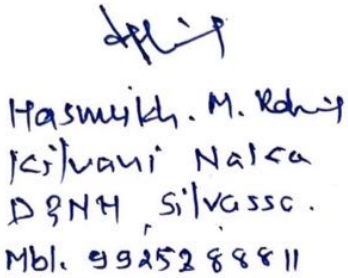 Hasmukh. M. Rohit
Kilvani Naka
D&NH, Silvassa.
Mbl. 9925288811